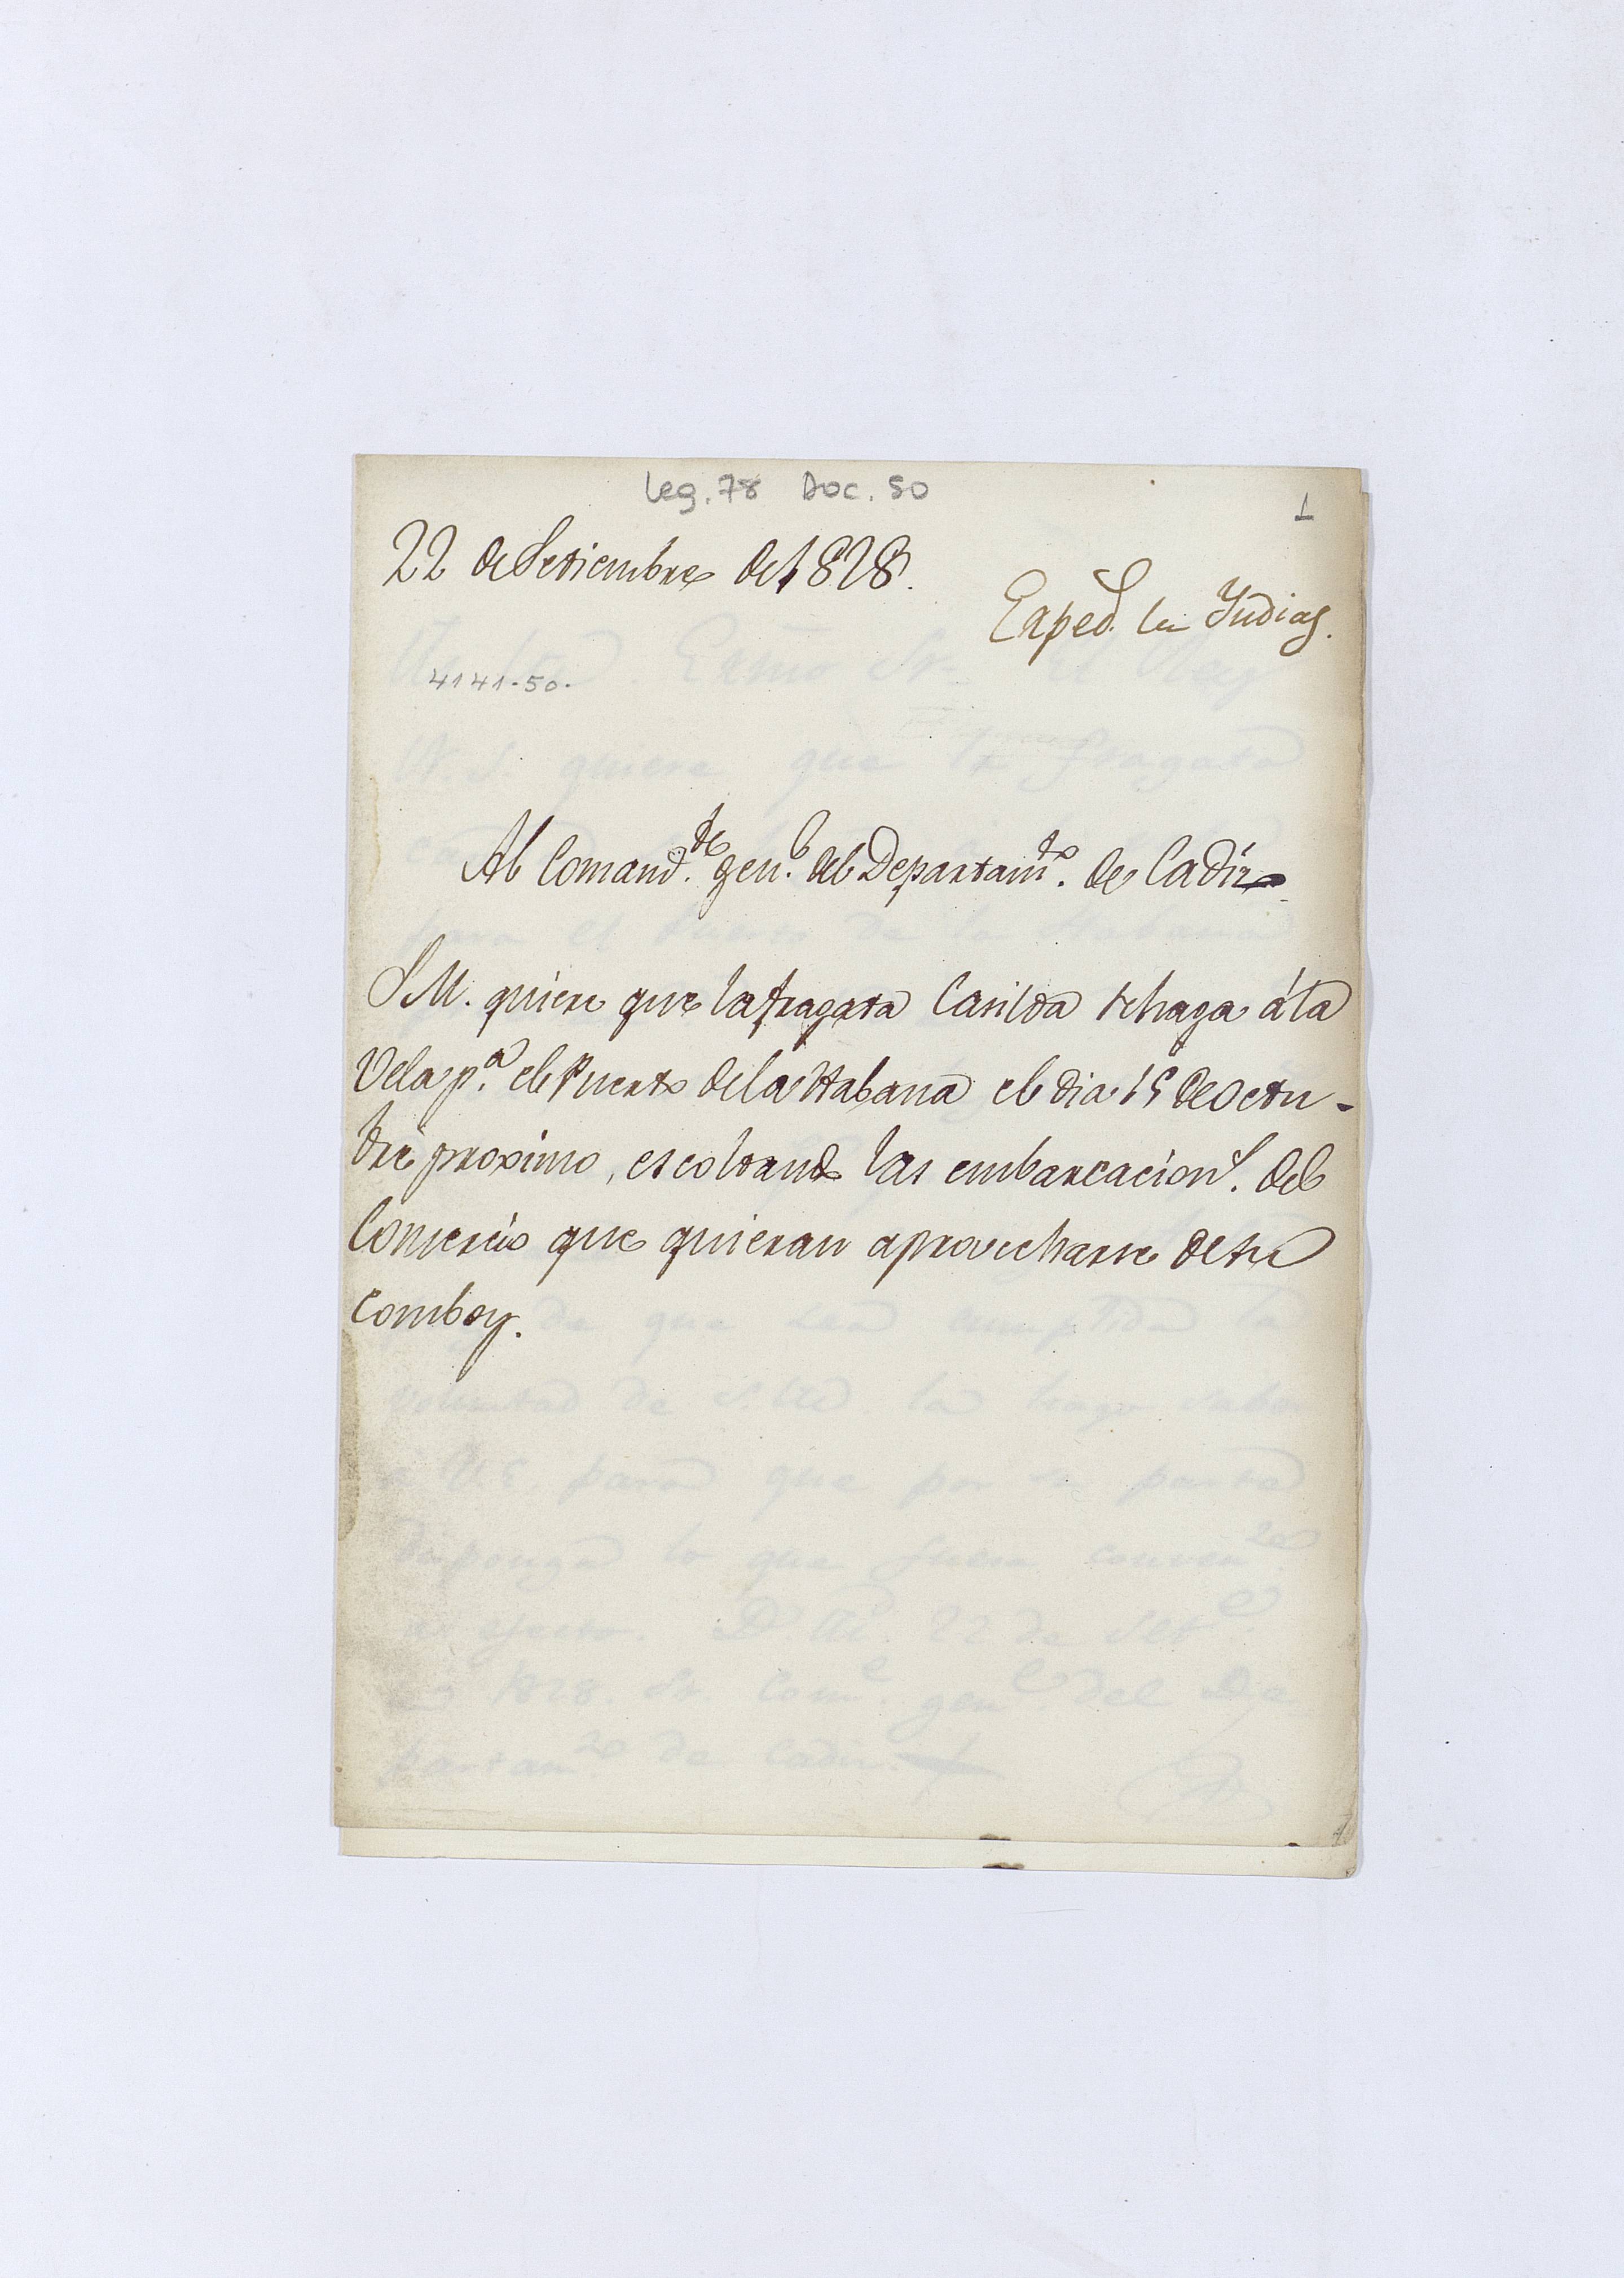 Leg. 78 Doc. 50
1
22 de Setiembre de 1828.
Exped.s de Yndias.
4141-50.
Al Comand.te gen.l del Departam.to de Cadiz
S M. quiere que la fragata Casilda se haga á la
Vela p.a el Puerto de la Habana el dia 15 de Octu-
bre proximo, escoltando las embarcacion.s del
Comercio que quieran aprovecharse de su
comboy.